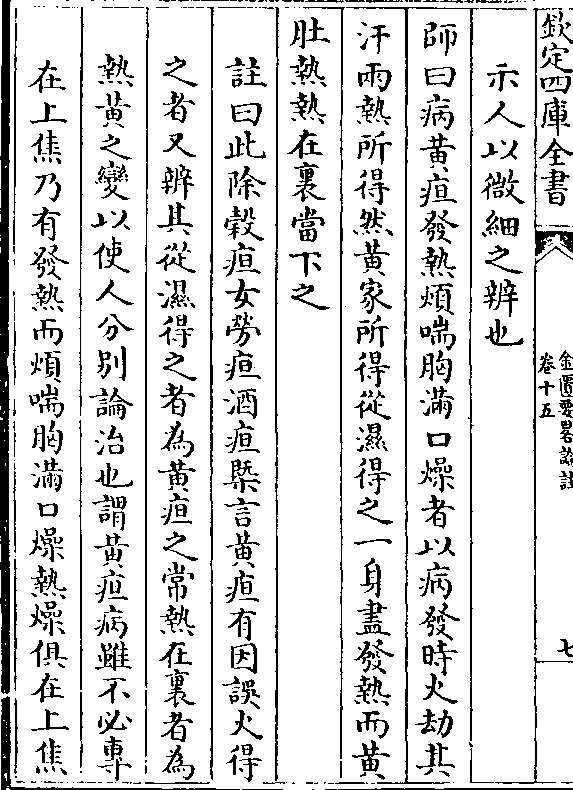 欽定四庫全書
金匱要畧論註
卷十五
七
示人以微細之辨也
師曰病黃疸發熱煩喘胸滿口燥者以病發時火劫其
汗兩熱所得然黃家所得從濕得之一身盡發熱而黃
肚熱熱在裏當下之
註曰此除穀疸女勞疸酒疸槩言黃疸有因誤火得
之者又辨其從濕得之者為黃疸之常熱在裏者為
熱黃之變以使人分別論治也謂黃疸病雖不必專
在上焦乃有發熱而煩喘胸滿口燥熱燥俱在上焦